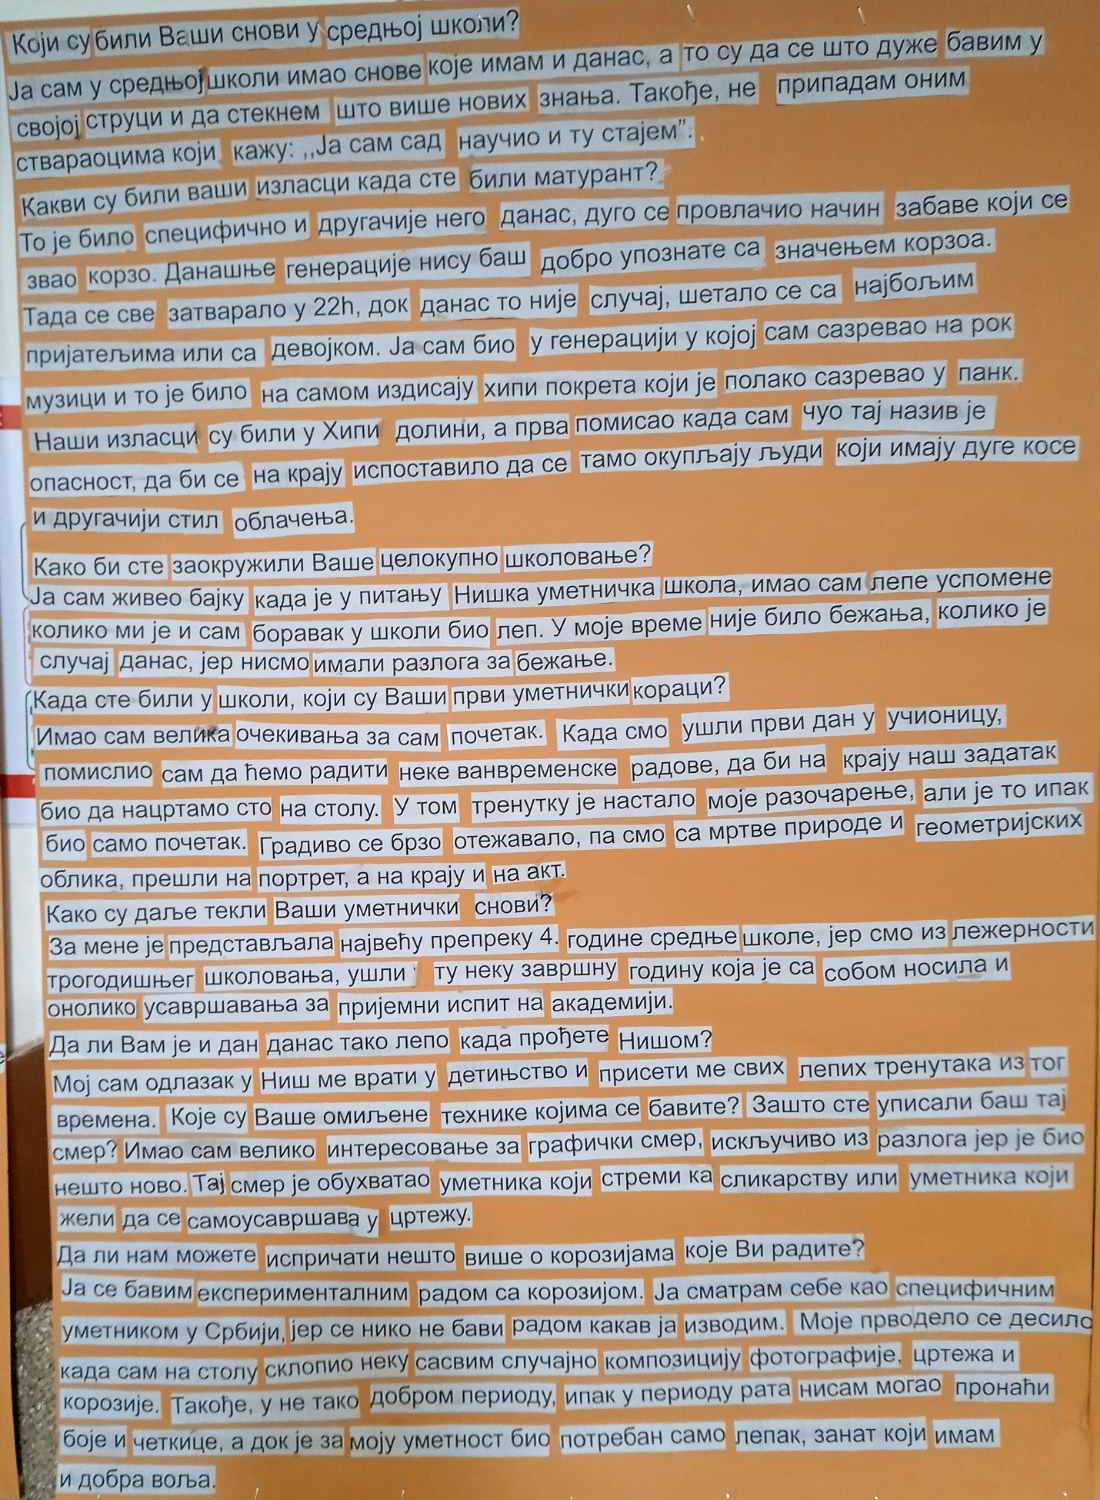 Који су били Ваши снови у средњој школи?
Ја сам у средњој школи имао снове које имам и данас, а то су да се што дуже бавим у
својој струци и да стекнем што више нових знања. Такође, не припадам оним
ствараоцима који кажу: ,,Ја сам сад научио и ту стајем”.
Какви су били ваши изласци када сте били матурант?
То је било специфично и другачије него данас, дуго се провлачио начин забаве који се
звао корзо. Данашње генерације нису баш добро упознате са значењем корзоа.
Тада се све затварало у 22h, док данас то није случај, шетало се са најбољим
пријатељима или са девојком. Ја сам био у генерацији у којој сам сазревао на рок
музици и то је било на самом издисају хипи покрета који је полако сазревао у панк.
Наши изласци су били у Хипи долини, а прва помисао када сам чуо тај назив је
опасност, да би се на крају испоставило да се тамо окупљају људи који имају дуге косе
и другачији стил облачења.
Како би сте заокружили Ваше целокупно школовање?
Ја сам живео бајку када је у питању Нишка уметничка школа, имао сам лепе успомене
колико ми је и сам боравак у школи био леп. У моје време није било бежања, колико је
случај данас, јер нисмо имали разлога за бежање.
Када сте били у школи, који су Ваши први уметнички кораци?
Имао сам велика очекивања за сам почетак. Када смо ушли први дан у учионицу,
помислио сам да ћемо радити неке ванвременске радове, да би на крају наш задатак
био да нацртамо сто на столу. У том тренутку је настало моје разочарење, али је то ипак
био само почетак. Градиво се брзо отежавало, па смо са мртве природе и геометријских
облика, прешли на портрет, а на крају и на акт.
Како су даље текли Ваши уметнички снови?
За мене је представљала највећу препреку 4. године средње школе, јер смо из лежерности
трогодишњег школовања, ушли ту неку завршну годину која је са собом носила и
онолико усавршавања за пријемни испит на академији.
Да ли Вам је и дан данас тако лепо када прођете Нишом?
Мој сам одлазак у Ниш ме врати у детињство и присети ме свих лепих тренутака из тог
времена. Које су Ваше омиљене технике којима се бавите? Зашто сте уписали баш тај
смер? Имао сам велико интересовање за графички смер, искључиво из разлога јер је био
нешто ново. Тај смер је обухватао уметника који стреми ка сликарству или уметника који
жели да се самоусавршава у цртежу.
Да ли нам можете испричати нешто више о корозијама које Ви радите?
Ја се бавим експерименталним радом са корозијом. Ја сматрам себе као специфичним
уметником у Србији, јер се нико не бави радом какав ја изводим. Моје прводело се десило
када сам на столу склопио неку сасвим случајно композицију фотографије, цртежа и
корозије. Такође, у не тако добром периоду, ипак у периоду рата нисам могао пронаћи
боје и четкице, а док је за моју уметност био потребан само лепак, занат који имам
и добра воља.